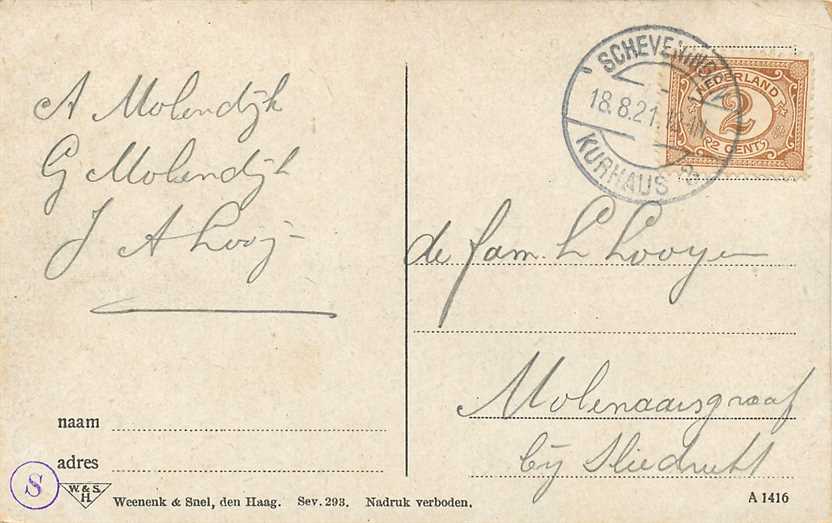 A Molendijk
G Molendijk
J A Looij
naam
adres
S
W. & S.
H
Weenenk & Snel, den Haag. Sev. 293. Nadruk verboden.
SCHEVENING
18.8.21
KURHAUS 3
NEDERLAND
2
2 CENT
de fam. L Looyen
Molenaarsgraaf
bij Sliedrecht
A 1416